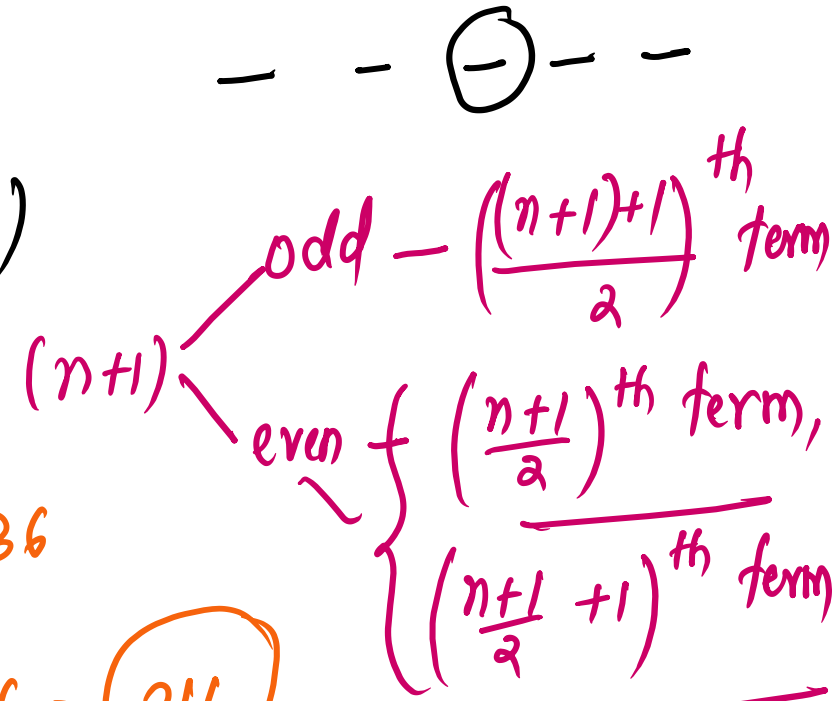 )
(n+1)
odd – (((n+1)+1)/2)^th term
even – { ((n+1)/2)^th term,
((n+1)/2 + 1)^th term
36